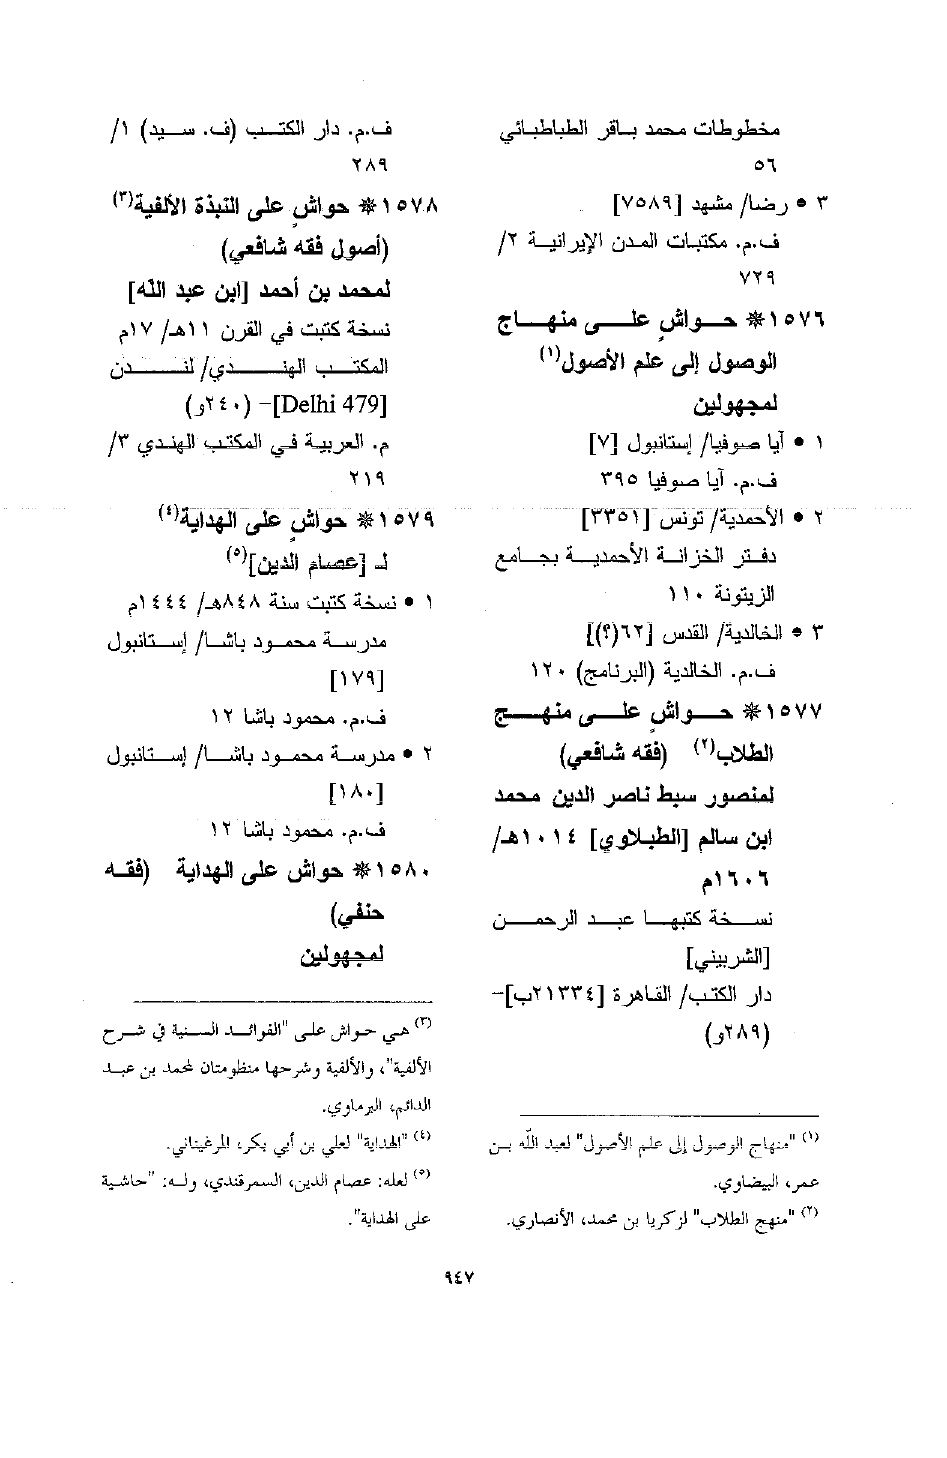 مخطوطات محمد باقر الطباطبائي
٥٦
٣ • رضا/ مشهد [٧٥٨٩]
ف.م. مكتبات المدن الإيرانية ٢/
٧٢٩
١٥٧٦* حواشٍ على منهاج
الوصول إلى علم الأصول(١)
لمجهولين
١ • آيا صوفيا/ إستانبول [٧]
ف.م. آيا صوفيا ٣٩٥
٢ • الأحمدية/ تونس [٣٣٥١]
دفتر الخزانة الأحمدية بجامع
الزيتونة ١١٠
٣ • الخالدية/ القدس [٦٢(؟)]
ف.م. الخالدية (البرنامج) ١٢٠
١٥٧٧* حواشٍ على منهج
الطلاب(٢) (فقه شافعي)
لمنصور سبط ناصر الدين محمد
ابن سالم [الطبلاوي] ١٠١٤هـ/
١٦٠٦م
نسخة كتبها عبد الرحمن
[الشربيني]
دار الكتب/ القاهرة [٢١٣٣٤ب]-
(٢٨٩و)
(١) "منهاج الوصول إلى علم الأصول" لعبد الله بن
عمر، البيضاوي.
(٢) "منهج الطلاب" لزكريا بن محمد، الأنصاري.
ف.م. دار الكتب (ف. سيد) ١/
٢٨٩
١٥٧٨* حواشٍ على النبذة الألفية(٣)
(أصول فقه شافعي)
لمحمد بن أحمد [ابن عبد الله]
نسخة كتبت في القرن ١١هـ/ ١٧م
المكتب الهندي/ لندن
[Delhi 479]- (٢٤٠و)
م. العربية في المكتب الهندي ٣/
٢١٩
١٥٧٩* حواشٍ على الهداية(٤)
لـ [عصام الدين](٥)
١ • نسخة كتبت سنة ٨٤٨هـ/ ١٤٤٤م
مدرسة محمود باشا/ إستانبول
[١٧٩]
ف.م. محمود باشا ١٢
٢ • مدرسة محمود باشا/ إستانبول
[١٨٠]
ف.م. محمود باشا ١٢
١٥٨٠* حواش على الهداية (فقه
حنفي)
لمجهولين
(٣) هي حواش على "الفوائد السنية في شرح
الألفية"، والألفية وشرحها منظومتان لمحمد بن عبد
الدائم، البرماوي.
(٤) "الهداية" لعلي بن أبي بكر، المرغيناني.
(٥) لعله: عصام الدين، السمرقندي، وله: "حاشية
على الهداية".
٩٤٧